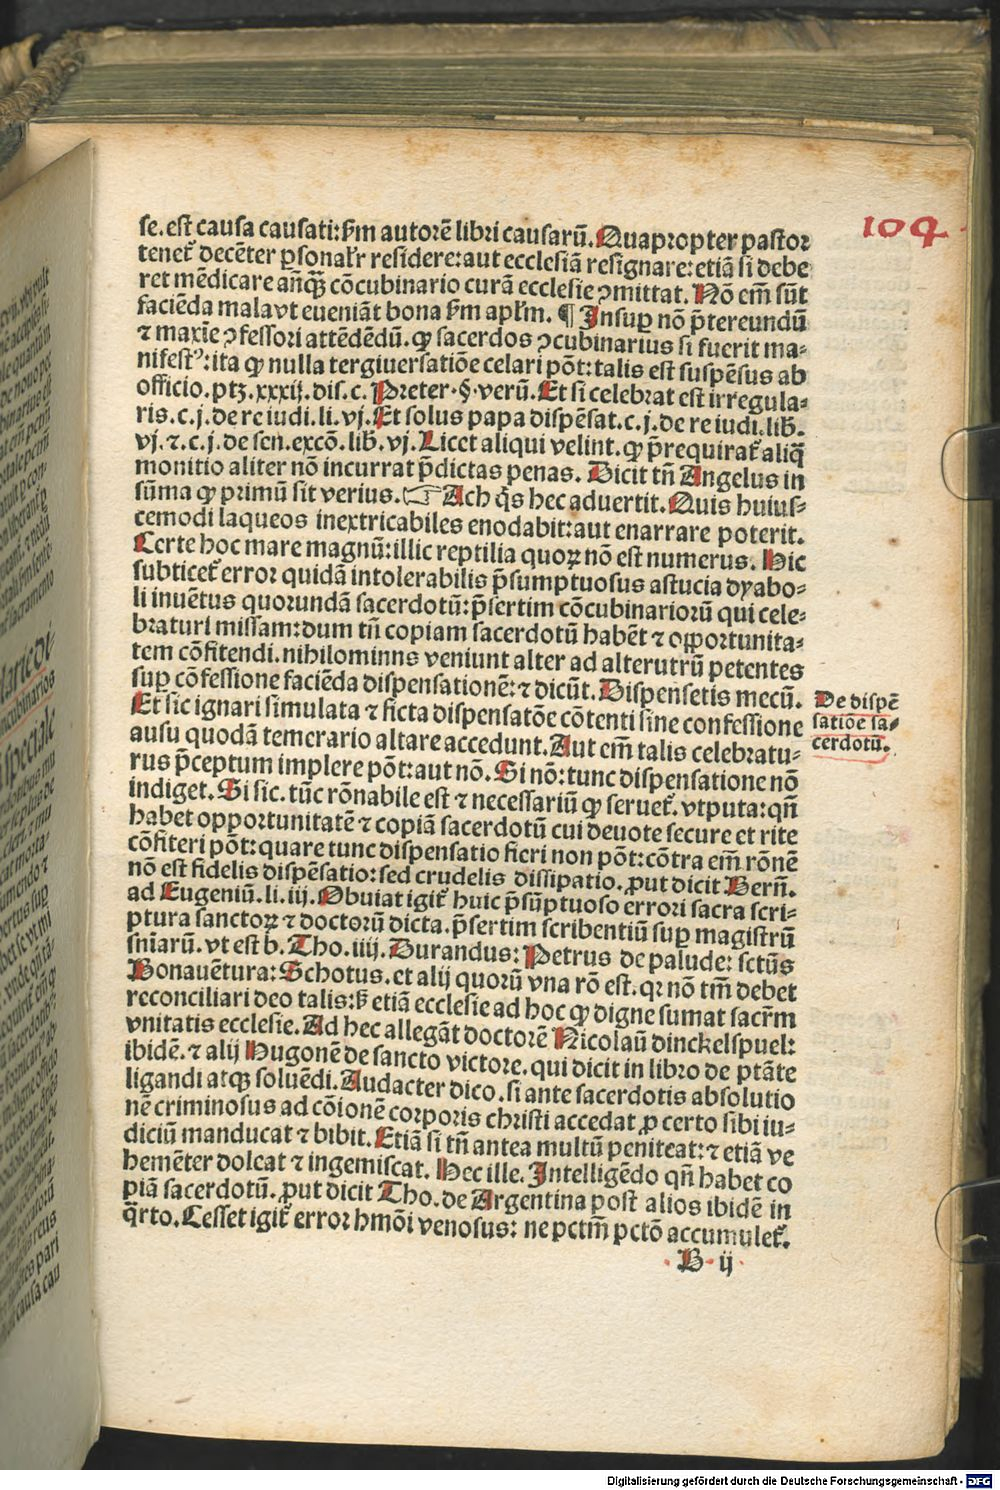 104
se. est causa causati: s̄m autorē libri causarū. Quapropter pastor
tenet̄ decēter ꝑsonal'r residere: aut ecclesiā resignare: etiā si debe
ret mēdicare an̄q̄ꝫ cōcubinario curā ecclesie ꝯmittat. Nō em̄ sūt
faciēda mala vt eueniāt bona s̄m apl'm. ¶ Insuꝑ nō p̄tereundū
⁊ maxīe ꝯfessori attēdēdū. ꝙ sacerdos ꝯcubinarius si fuerit ma-
nifestꝰ: ita ꝙ nulla tergiuersatiōe celari pōt: talis est suspēsus ab
officio. ptꝫ. xxxij. dis. c. Preter. §. verū. Et si celebrat est irregula-
ris. c. j. de re iudi. li. vj. Et solus papa dispēsat. c. j. de re iudi. lib̄.
vj. ⁊. c. j. de sen. excō. lib̄. vj. Licet aliqui velint. ꝙ p̄requirat̄ aliq̄
monitio aliter nō incurrat p̄dictas penas. Dicit tn̄ Angelus in
sūma ꝙ primū sit verius. ☞ Ach q̄s hec aduertit. Quis huius-
cemodi laqueos inextricabiles enodabit: aut enarrare poterit.
Certe hoc mare magnū: illic reptilia quoꝝ nō est numerus. Hic
subticet̄ error quidā intolerabilis p̄sumptuosus astucia dyabo-
li inuētus quorundā sacerdotū: p̄sertim cōcubinariorū qui cele-
braturi missam: dum tn̄ copiam sacerdotū habēt ⁊ opportunita-
tem cōfitendi. nihilominus veniunt alter ad alterutrū petentes
suꝑ cōfessione faciēda dispensationē: ⁊ dicūt. Dispensetis mecū.
Et sic ignari simulata ⁊ ficta dispensatōe cōtenti sine confessione
ausu quodā temerario altare accedunt. Aut em̄ talis celebratu-
rus p̄ceptum implere pōt: aut nō. Si nō: tunc dispensatione nō
indiget. Si sic. tūc rōnabile est ⁊ necessariū ꝙ seruet̄. vtputa: qn̄
habet opportunitatē ⁊ copiā sacerdotū cui deuote secure et rite
cōfiteri pōt: quare tunc dispensatio fieri non pōt: cōtra em̄ rōnē
nō est fidelis dispēsatio: sed crudelis dissipatio. ꝓut dicit Bern̄.
ad Eugeniū. li. iij. Obuiat igit̄ huic p̄sūptuoso errori sacra scri-
ptura sanctoꝝ ⁊ doctorū dicta. p̄sertim scribentiū suꝑ magistrū
sn̄iarū. vt est b. Tho. iiij. Durandus: Petrus de palude: sctūs
Bonauētura: Schotus. et alij quorū vna rō est. qꝛ nō tm̄ debet
reconciliari deo talis: s̄ etiā ecclesie ad hoc ꝙ digne sumat sacr̄m
vnitatis ecclesie. Ad hec allegāt doctorē Nicolaū dinckelspuel:
ibidē. ⁊ alij Hugonē de sancto victore. qui dicit in libro de ptāte
ligandi atqꝫ soluēdi. Audacter dico. si ante sacerdotis absolutio
nē criminosus ad cōionē corporis christi accedat. ꝓ certo sibi iu-
diciū manducat ⁊ bibit. Etiā si tn̄ antea multū peniteat: ⁊ etiā ve
hemēter doleat ⁊ ingemiscat. Hec ille. Intelligēdo qn̄ habet co
piā sacerdotū. ꝓut dicit Tho. de Argentina post alios ibidē in
q̄rto. Cesset igit̄ error hmōi venosus: ne pctm̄ pctō accumulet̄.
B ij
De dispē
satiōe sa-
cerdotū.
Digitalisierung gefördert durch die Deutsche Forschungsgemeinschaft - DFG